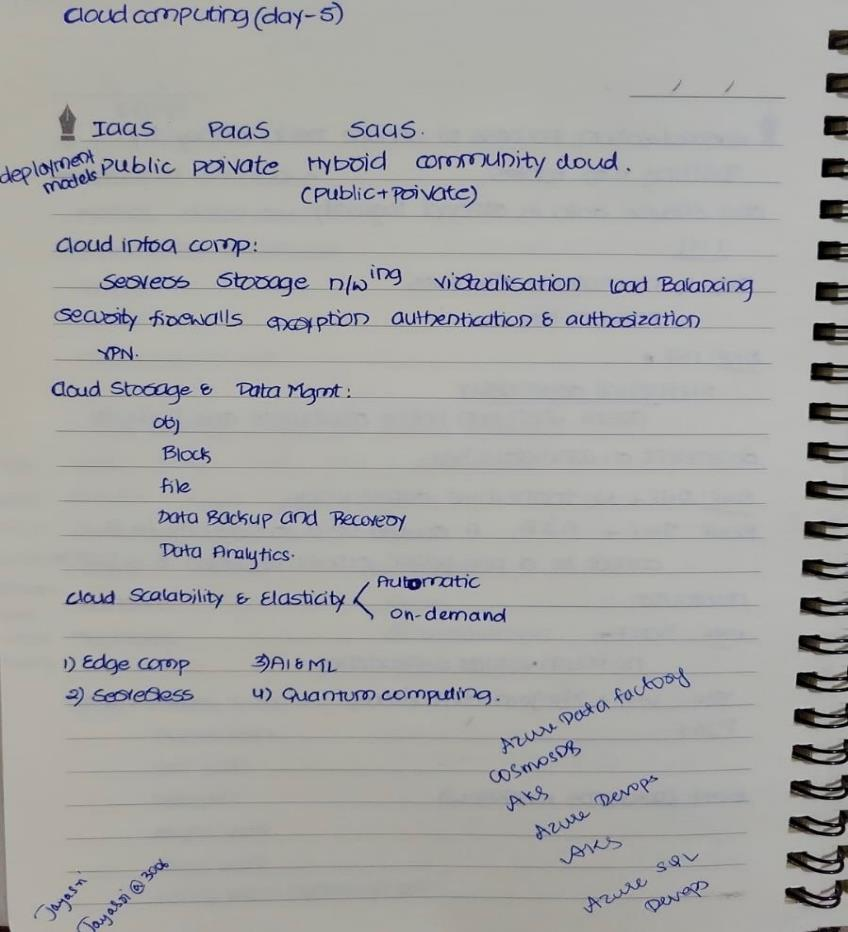 cloud computing (day-5)
IaaS PaaS SaaS.
deployment models public private Hybrid community cloud.
(public+private)
cloud infra comp:
servers storage n/wing virtualisation load Balancing
security firewalls encryption authentication & authorization
VPN.
cloud storage & Data Mgmt:
obj
Block
file
Data Backup and Recovery
Data Analytics.
cloud Scalability & Elasticity < Automatic
on-demand
1) Edge comp 3) AI & ML
2) serverless 4) Quantum computing.
Azure Data factory
COSMOSDB
AKS
Azure Devops
AKS
Azure SQL
Devops
Jayasri
Jayasri@3006